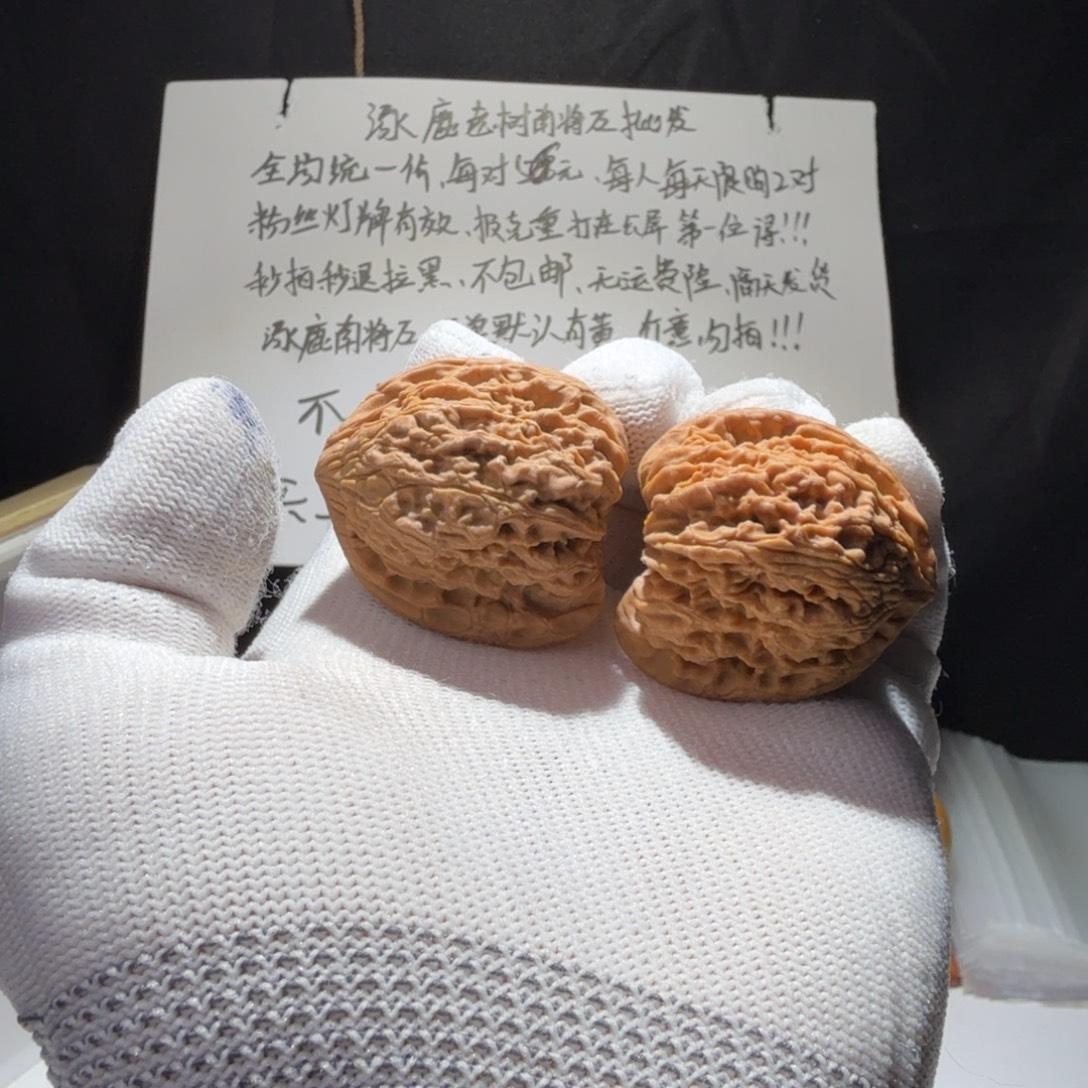 涿鹿老树南将石批发
全均统一价、每对元、每人每天限购2对
粉丝灯牌有效、报克重打在公屏第一位得!!!
秒拍秒退拉黑、不包邮、无运费险、隔天发货
涿鹿南将石 默认有黄 介意勿拍!!!
不